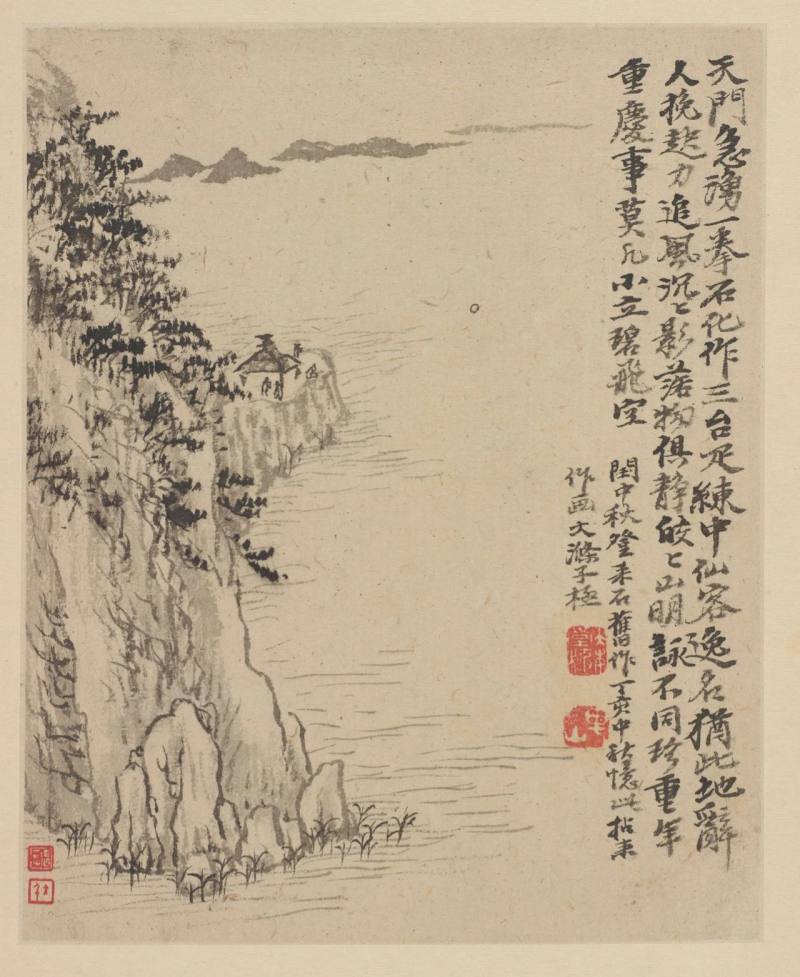 天門急湧一拳石化作三台疋練中仙客逸名猶此地辭
人挽起力追風沉〻影落物俱静皎〻山明詠不同珍重年
重慶事莫凡小立碧飛空
閏中秋登采石舊作丁亥中秋憶此拈来
作画大滌子極